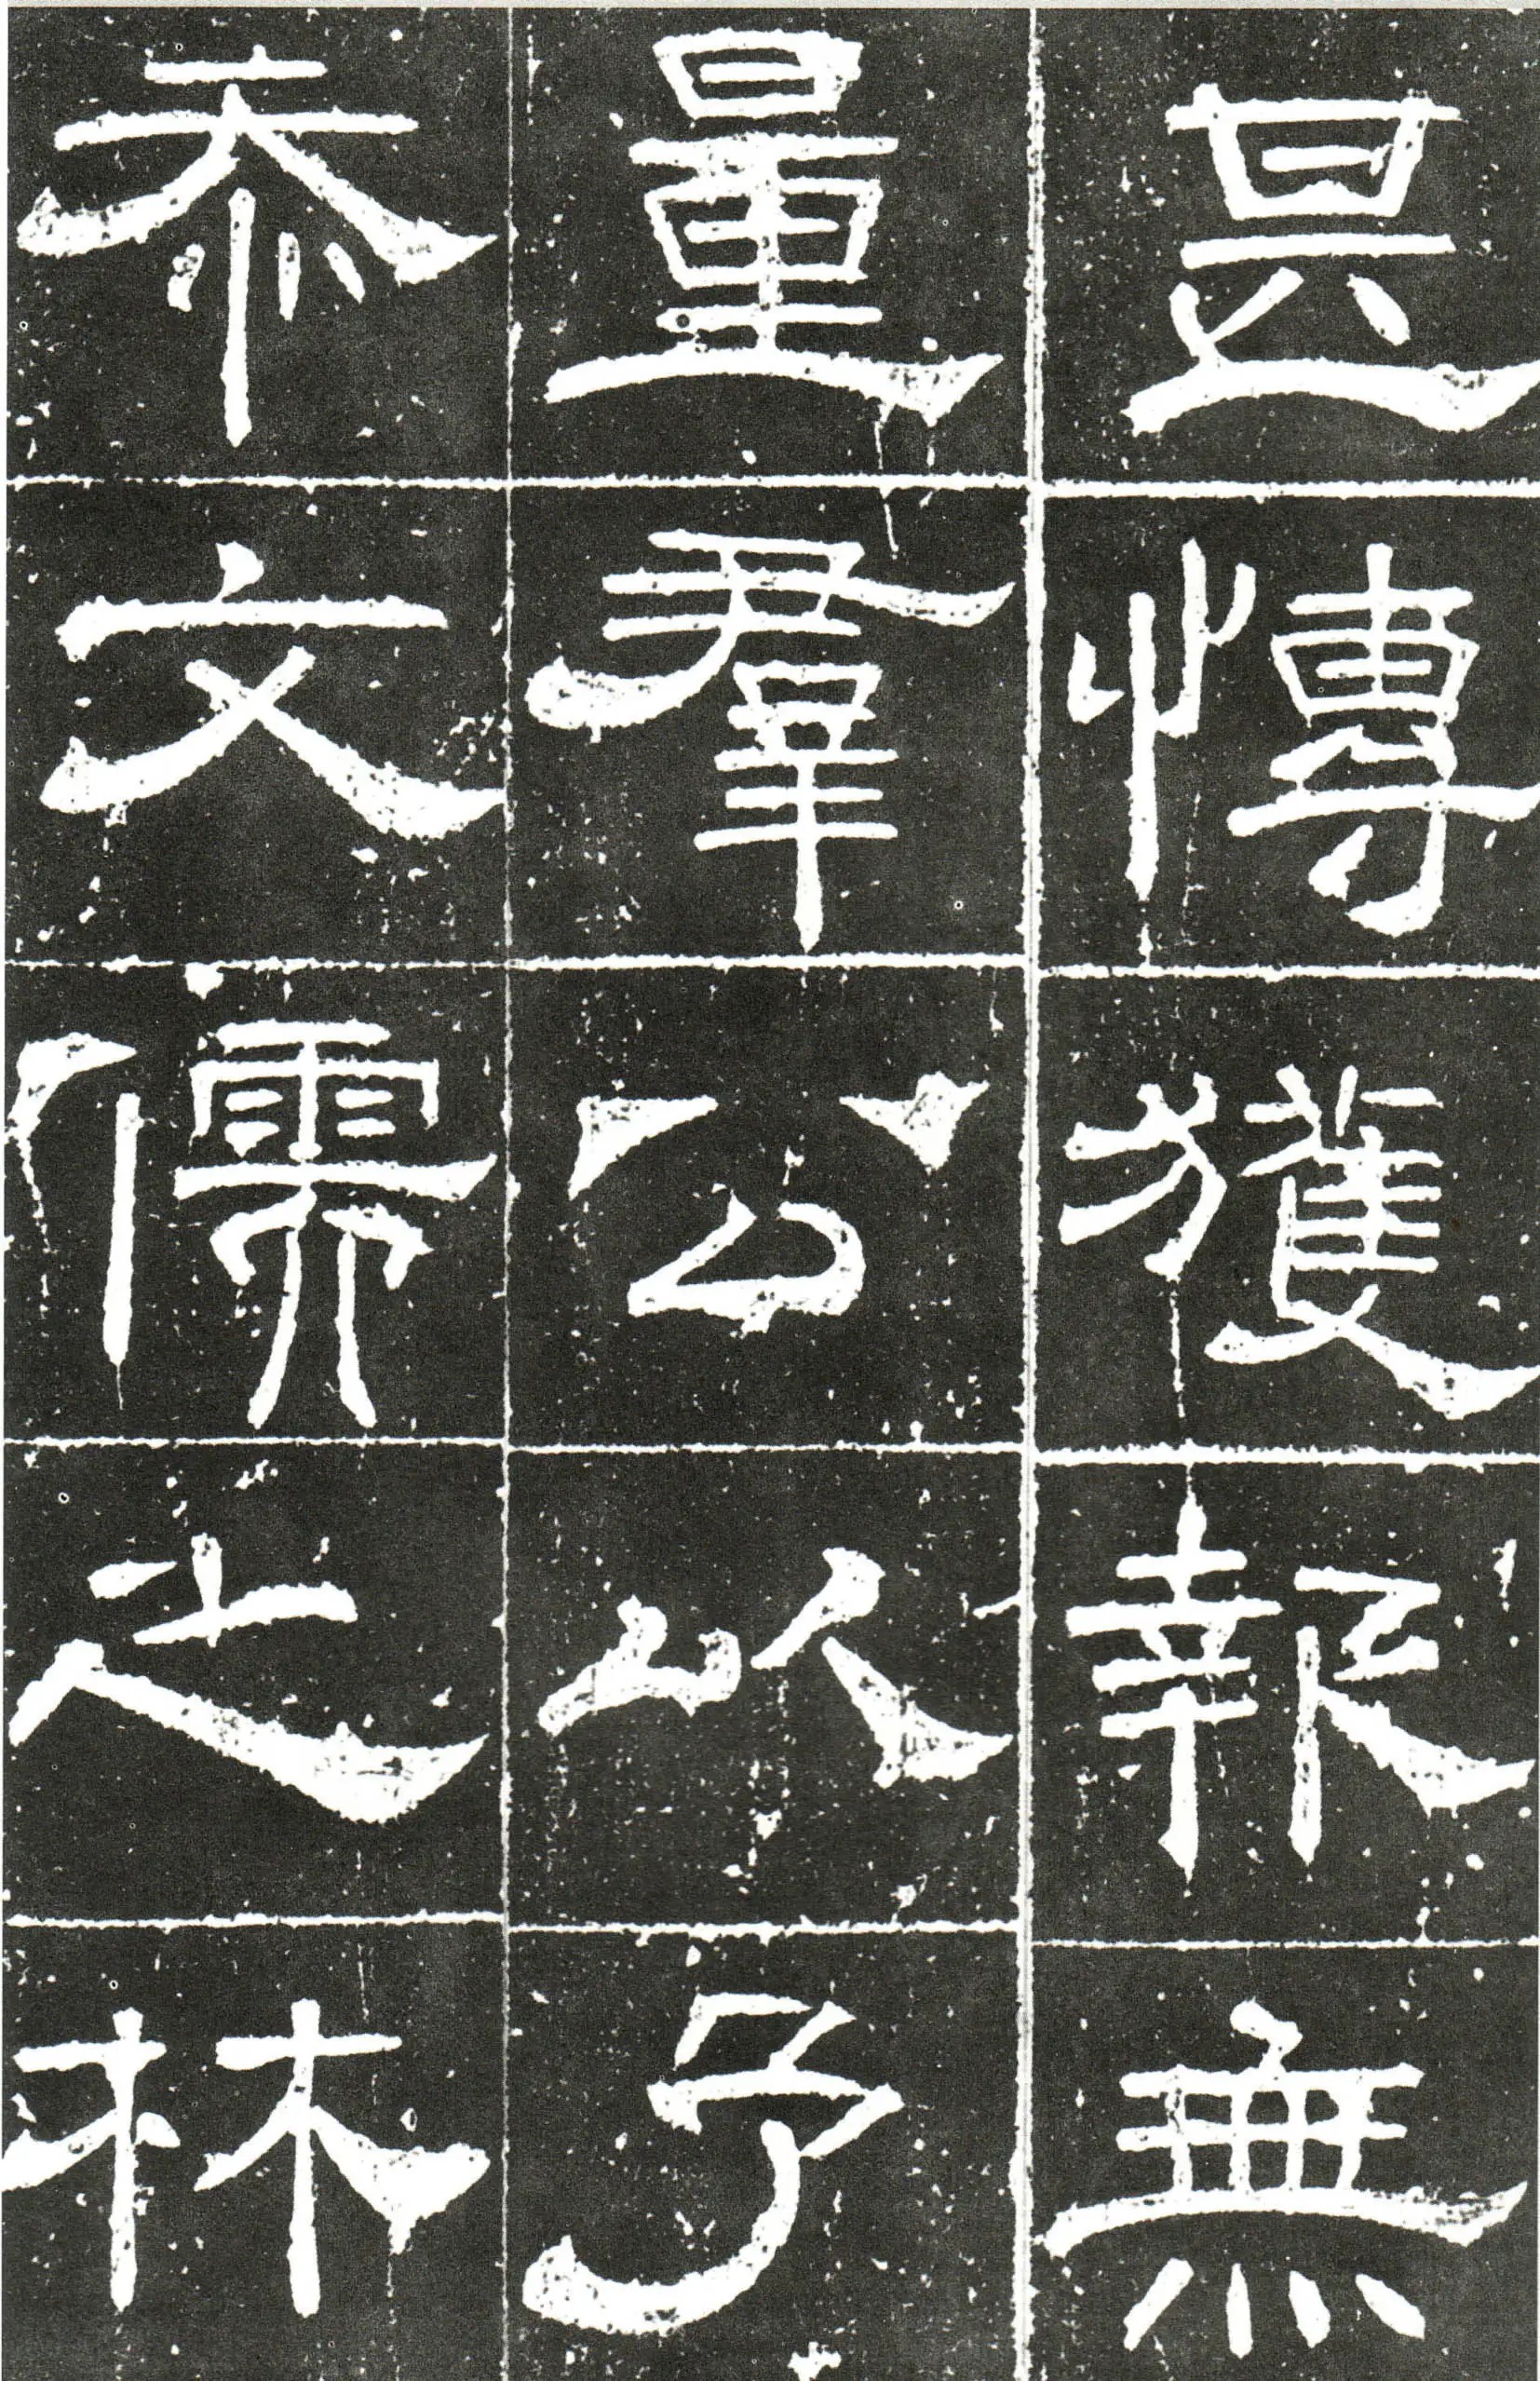 甚愽獲報無
量羣公以予
忝文儒之林